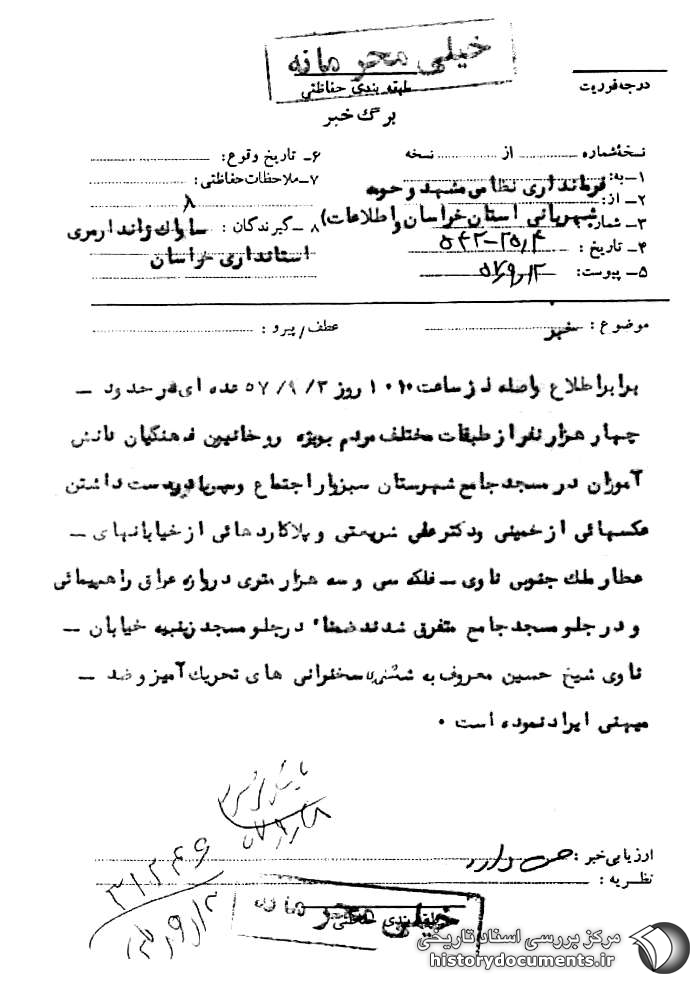 خیلی محرمانه
طبقه بندی حفاظتی
درجه فوریت
برگ خبر
نسخهٔ شماره از نسخه
۱ـ به: فرمانداری نظامی مشهد و حومه
۲ـ از: شهربانی استان خراسان (اطلاعات)
۳ـ شماره ۲۵٫۴-۵۴۲
۴ـ تاریخ :
۵ـ پیوست:
۶ـ تاریخ وقوع :
۷ـ ملاحظات حفاظتی :
۸
۸ ـ گیرندگان : ساواک ژاندارمری
استانداری خراسان
موضوع : خبر
عطف/پیرو :
برابر اطلاع واصله از ساعت ۱۰۱۰ روز ۳/ ۹/ ۵۷ عده ای در حدود ـ
چهار هزار نفر از طبقات مختلف مردم بویژه روحانیون فرهنگیان دانش
آموزان در مسجد جامع شهرستان سبزوار اجتماع و سپس با در دست داشتن
عکسهائی از خمینی و دکتر علی شریعتی و پلاکاردهائی از خیابانهای ـ
عطار ملک جنوبی ثاوی ـ فلکه سی و سه هزار متری دروازه عراق راهپیمائی
و در جلو مسجد جامع متفرق شدند ضمنا" در جلو مسجد زینبیه خیابان ـ
ثاوی شیخ حسین معروف به سخنرانی های تحریک آمیز و ضد ـ
میهنی ایراد نموده است .
ارزیابی خبر :
نظریه :
۳۱۲۴۶
خیلی محرمانه
طبقه بندی حفاظتی
مرکز بررسی اسناد تاریخی
historydocuments.ir